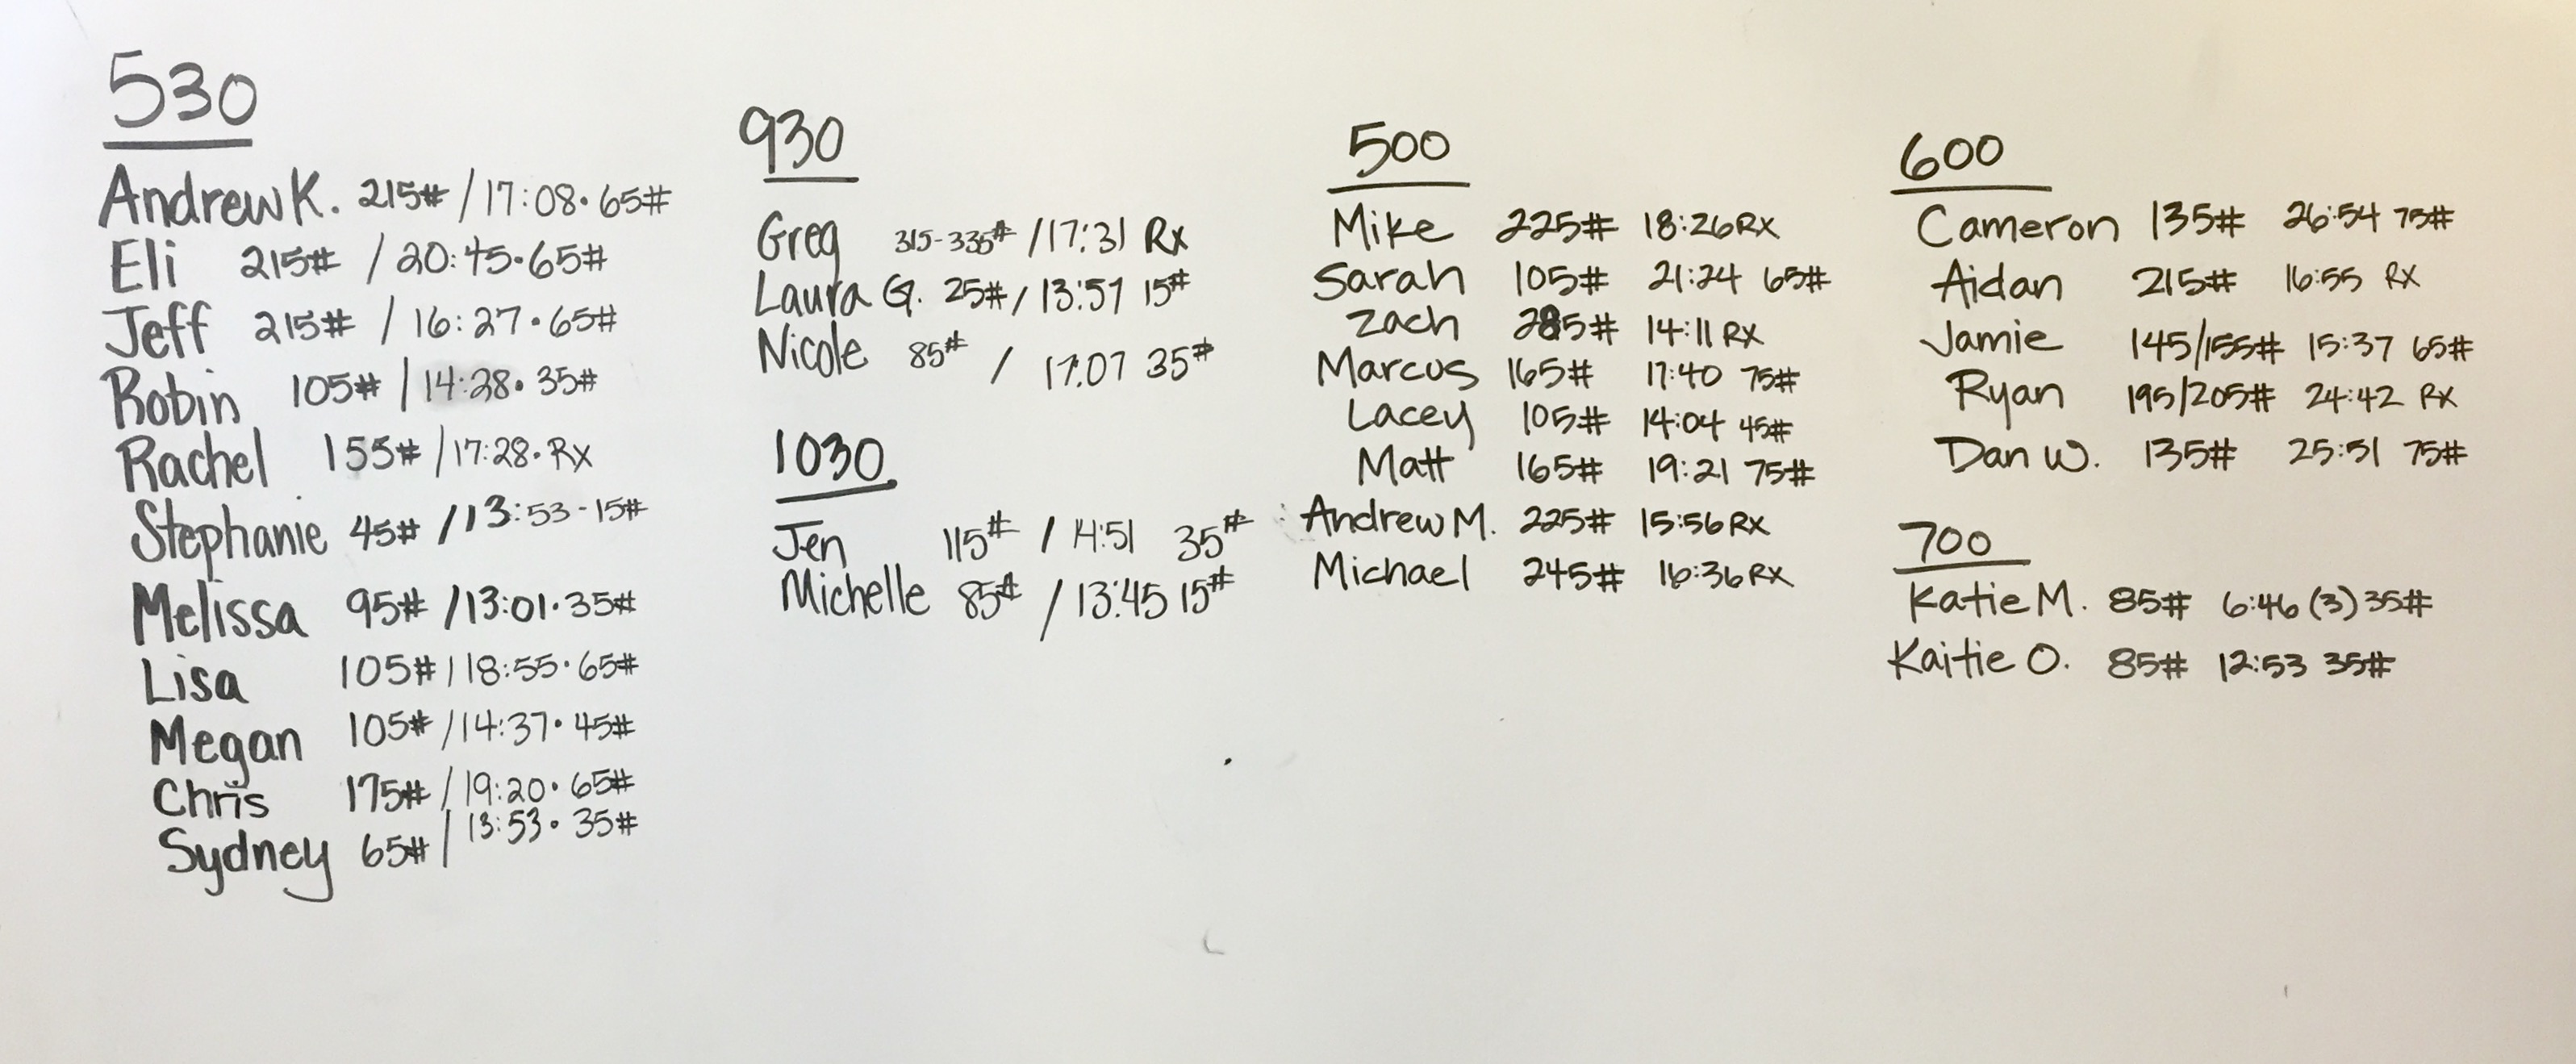 530
Andrew K. 215# / 17:08 • 65#
Eli 215# / 20:45 • 65#
Jeff 215# / 16:27 • 65#
Robin 105# / 14:28 • 35#
Rachel 155# / 17:28 • Rx
Stephanie 45# / 13:53 - 15#
Melissa 95# / 13:01 • 35#
Lisa 105# / 18:55 • 65#
Megan 105# / 14:37 • 45#
Chris 175# / 19:20 • 65#
Sydney 65# / 13:53 • 35#
930
Greg 315-335# / 17:31 Rx
Laura G. 25# / 13:57 15#
Nicole 85# / 17:07 35#
1030
Jen 115# / 14:51 35#
Michelle 85# / 13:45 15#
500
Mike 225# 18:26 RX
Sarah 105# 21:24 65#
Zach 285# 14:11 RX
Marcus 165# 17:40 75#
Lacey 105# 14:04 45#
Matt 165# 19:21 75#
Andrew M. 225# 15:56 RX
Michael 245# 16:36 RX
600
Cameron 135# 26:54 75#
Aidan 215# 16:55 RX
Jamie 145/155# 15:37 65#
Ryan 195/205# 24:42 RX
Dan W. 135# 25:51 75#
700
Katie M. 85# 6:46 (3) 35#
Kaitie O. 85# 12:53 35#